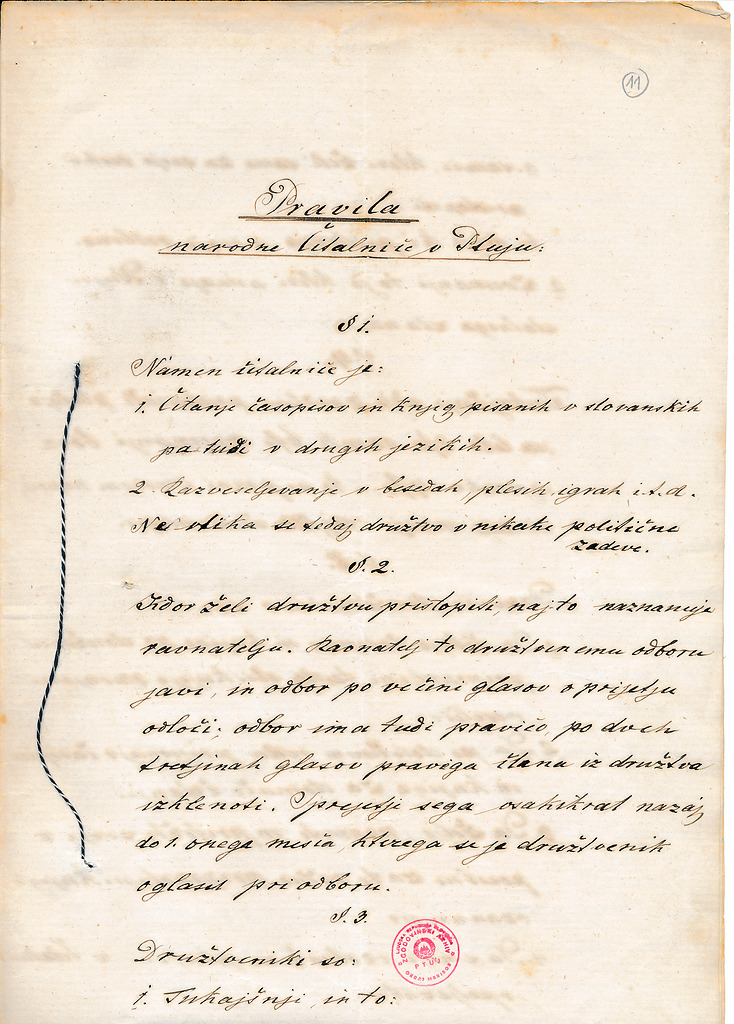 11
Pravila
narodne Čitalnice v Ptuju:
§ 1.
Namen čitalnice je:
1. Čitanje časopisov in knjig pisanih v slovanskih
pa tudi v drugih jezikih.
2. Razveseljevanje v besedah, plesih, igrah i.t.d.
Ne vtika se tedaj društvo v nikake politične
zadeve.
§. 2.
Kdor želi društvu pristopiti, naj to naznanuje
ravnatelju. Ravnatelj to društvenemu odboru
javi, in odbor po večini glasov o prijetju
odloči; odbor ima tudi pravico, po dveh
tretjinah glasov pravega člana iz društva
izklenoti. Sprejetje sega vsakikrat nazaj
do 1. onega mesca, kterega se je društvenik
oglasil pri odboru.
§. 3.
Društveniki so:
1. Tukajšnji, in to:
ZGODOVINSKI ARHIV
PTUJ